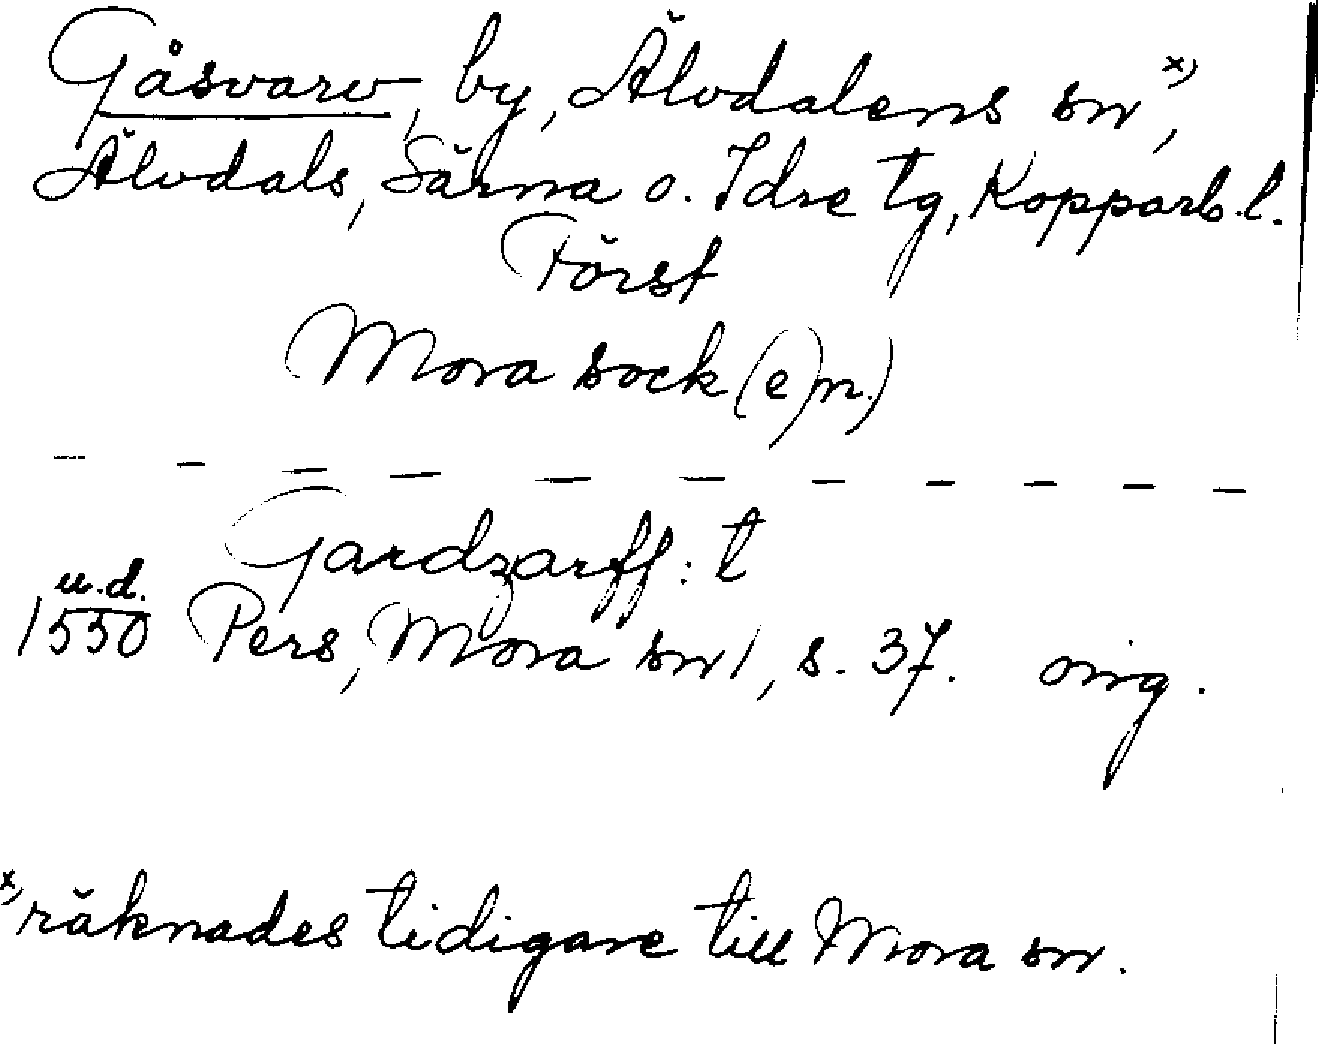 Gåsvarv, by, Älvdalens sn x),
Älvdals, Särna o. Idre tg, Kopparb. l.
Först
Mora sock(e)n.)
- - - - - - - - - - -
Gardzarff: t
u.d.
1550 Pers, Mora sn 1, s. 37. orig.
x) räknades tidigare till Mora sn.